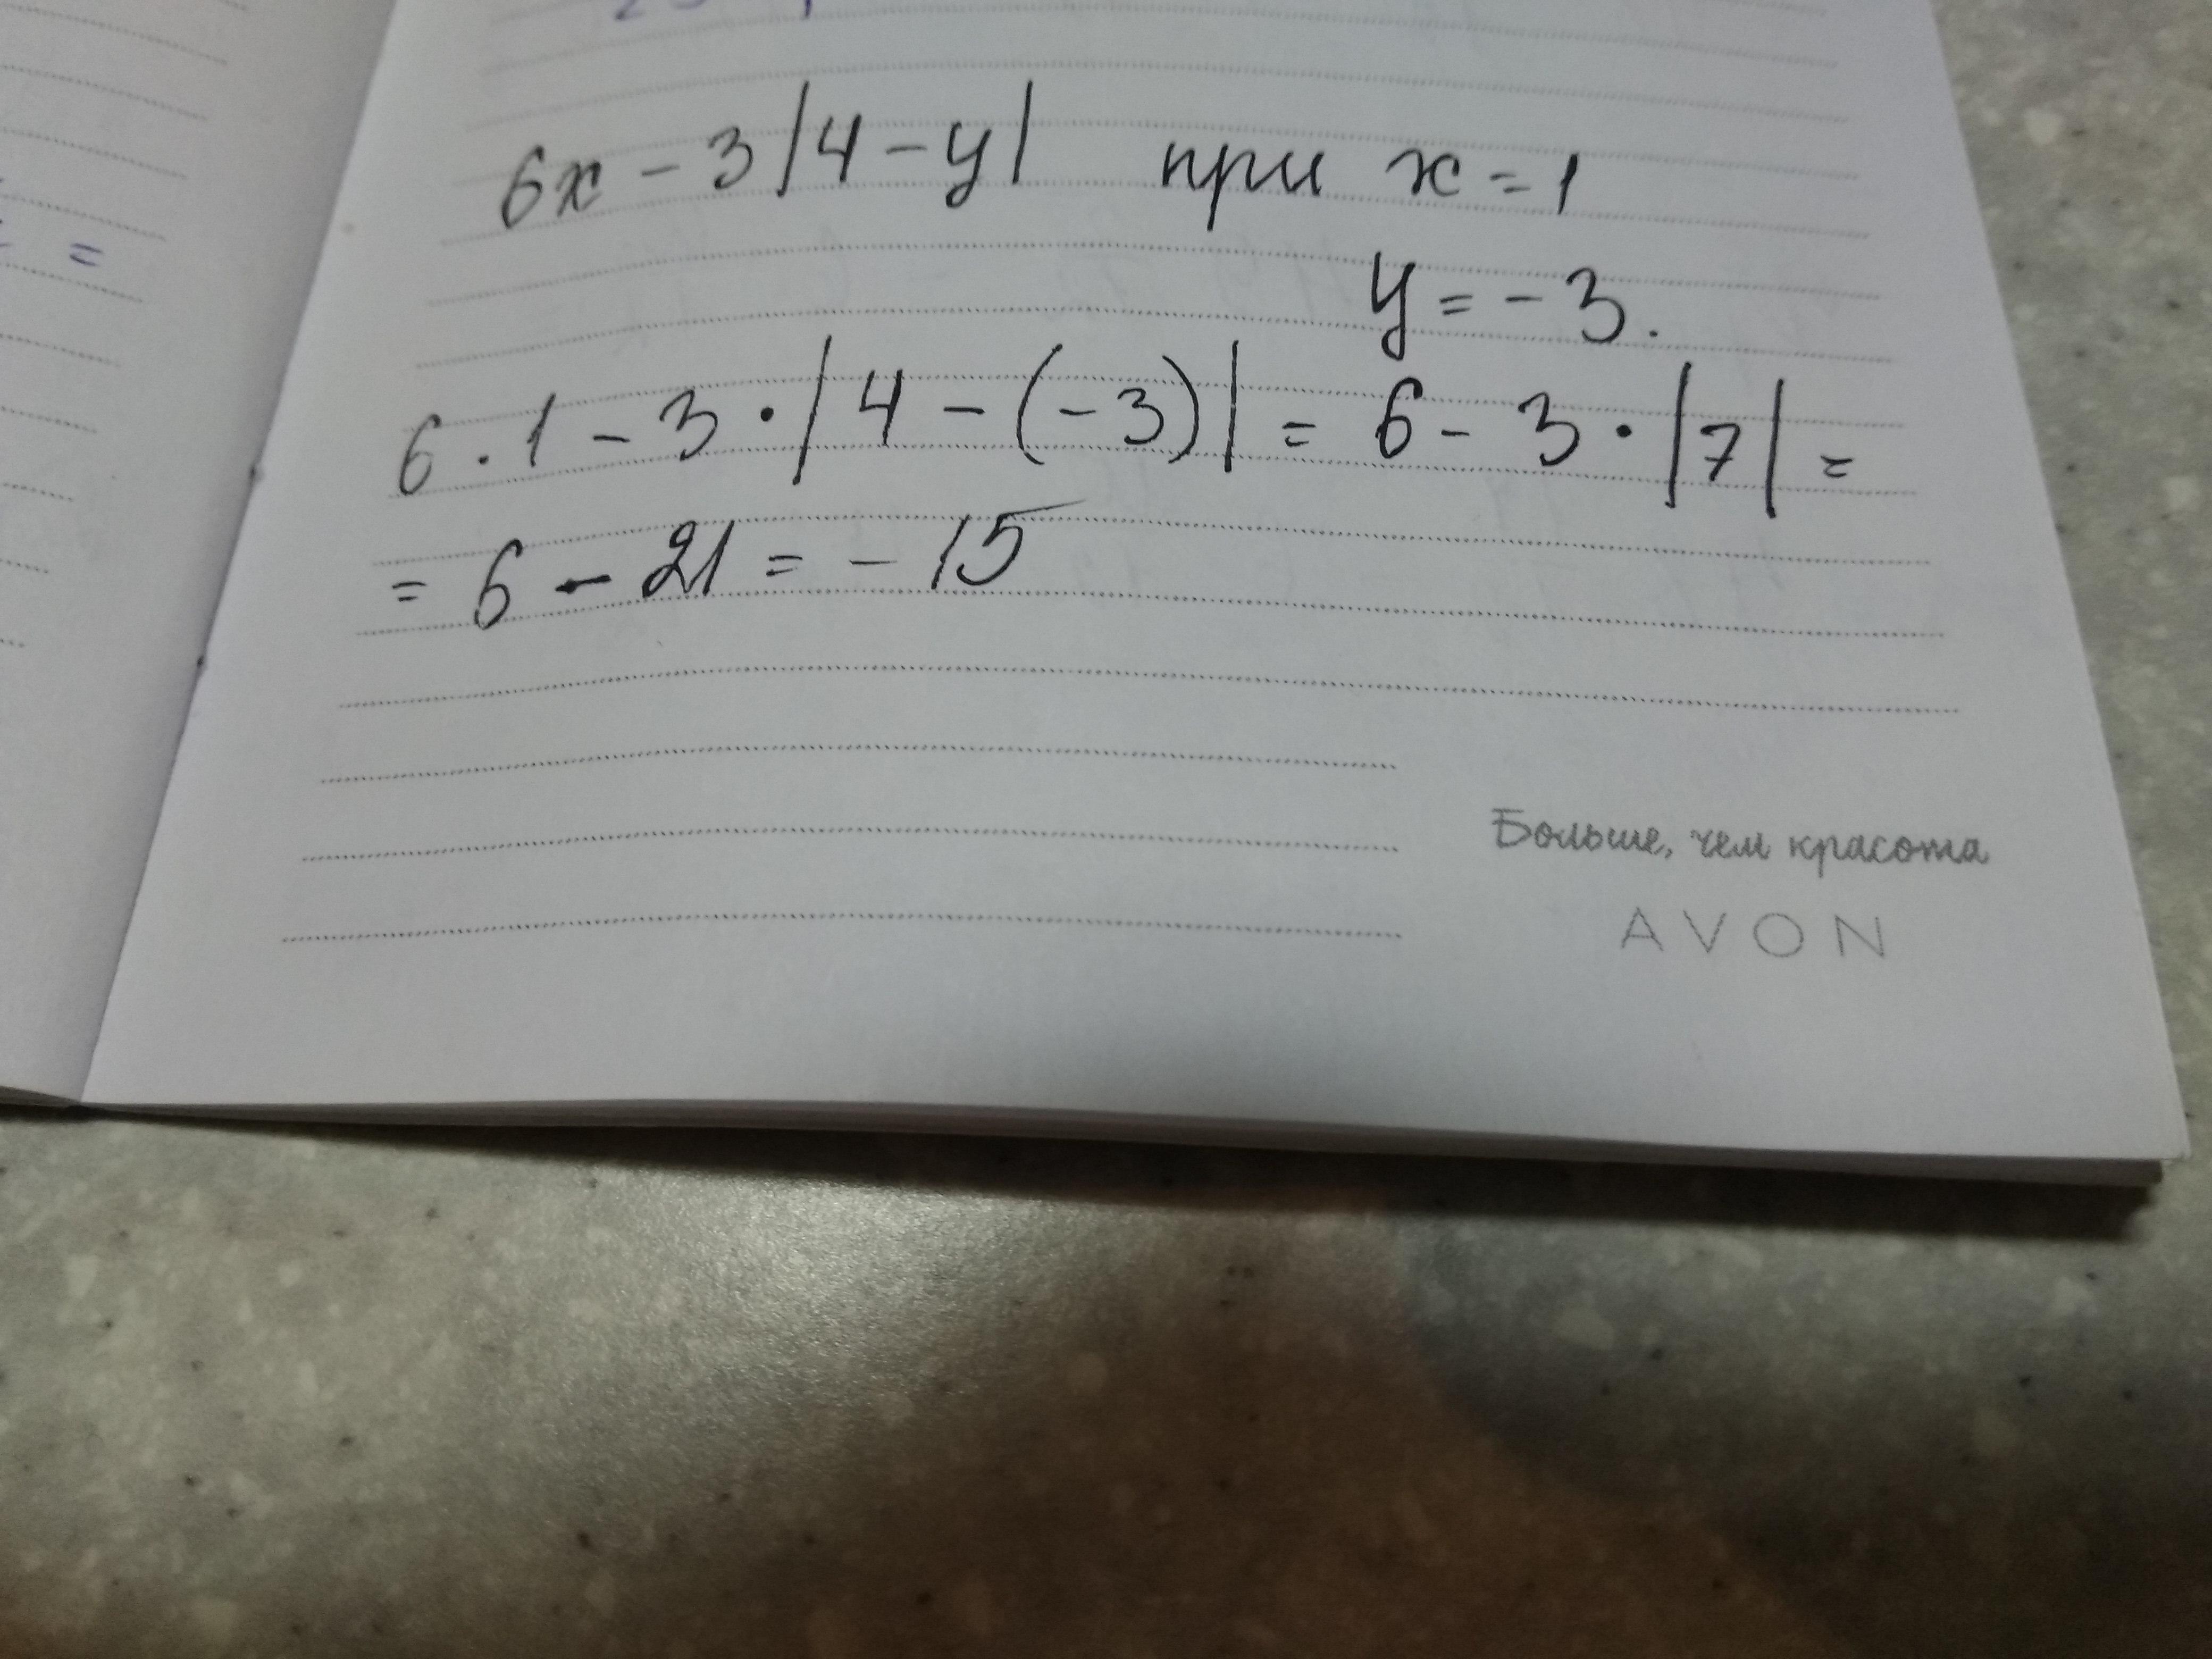 6x - 3|4 - y| при x = 1
y = -3.
6 · 1 - 3 · |4 - (-3)| = 6 - 3 · |7| =
= 6 - 21 = -15
Больше, чем красота
AVON
=